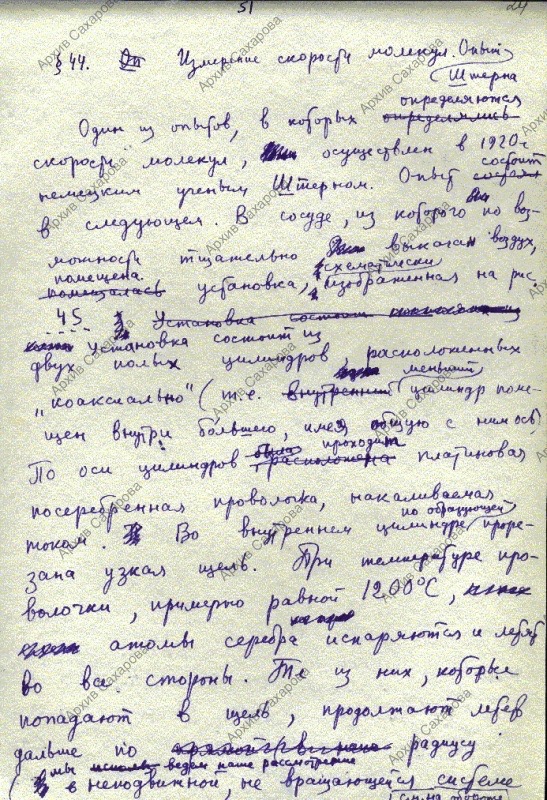 51
24
§ 44. Оп Измерение скорости молекул. Опыт
Штерна
определяются
Один из опытов, в которых определялись
скорости молекул, осуществлен в 1920 г
немецким ученым Штерном. Опыт состоял состоит
в следующем. В сосуде, из которого по воз-
можности тщательно выкачан воздух,
помещена схематически
помещалась установка, изображенная на рис.
45. Установка состоит
установка состоит из
двух полых цилиндров, расположенных
меньший
„коаксиально" (т.е. внутренний цилиндр поме-
щен внутри большего, имея общую с ним ось)
была проходит
По оси цилиндров расположена платиновая
посеребренная проволочка, накаливаемая
по образующей
током. Во внутреннем цилиндре проре-
зана узкая щель. При температуре про-
волочки, примерно равной 1200°С,
атомы серебра испаряются и летят
во все стороны. Те из них, которые
попадают в щель, продолжают лететь
дальше по радиусу
(мы ведем наше рассмотрение
в неподвижной, не вращающейся системе
см. на обороте
Архив Сахарова